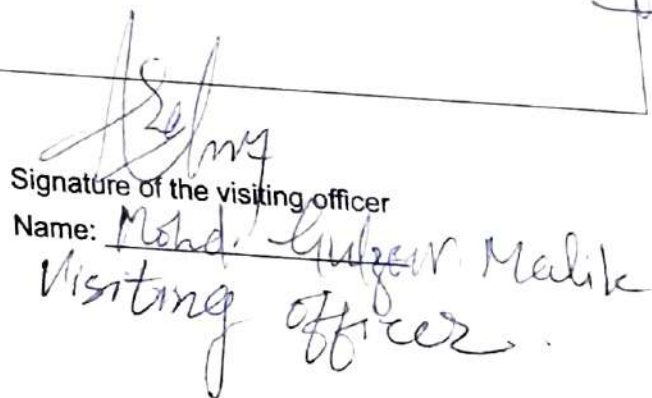 Signature of the visiting officer
Name: Mohd. Gulzar Malik
Visiting officer.